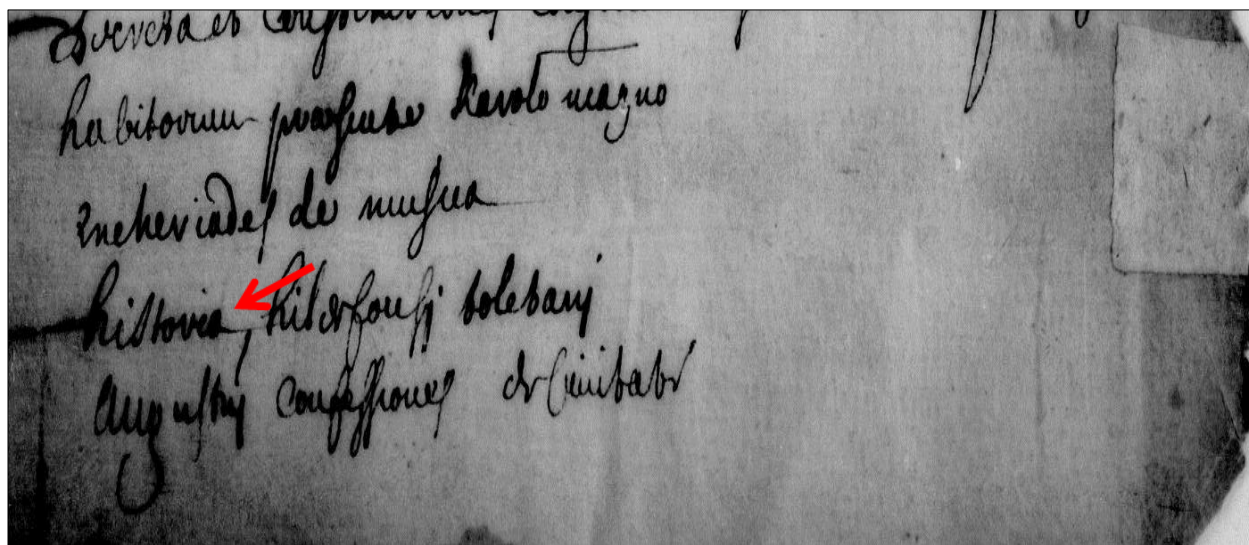 Decreta et
habitorum praesente Karolo magno
Encheriades de musica
historia, hildefonsi toletani
Augustini confessiones de Civitate